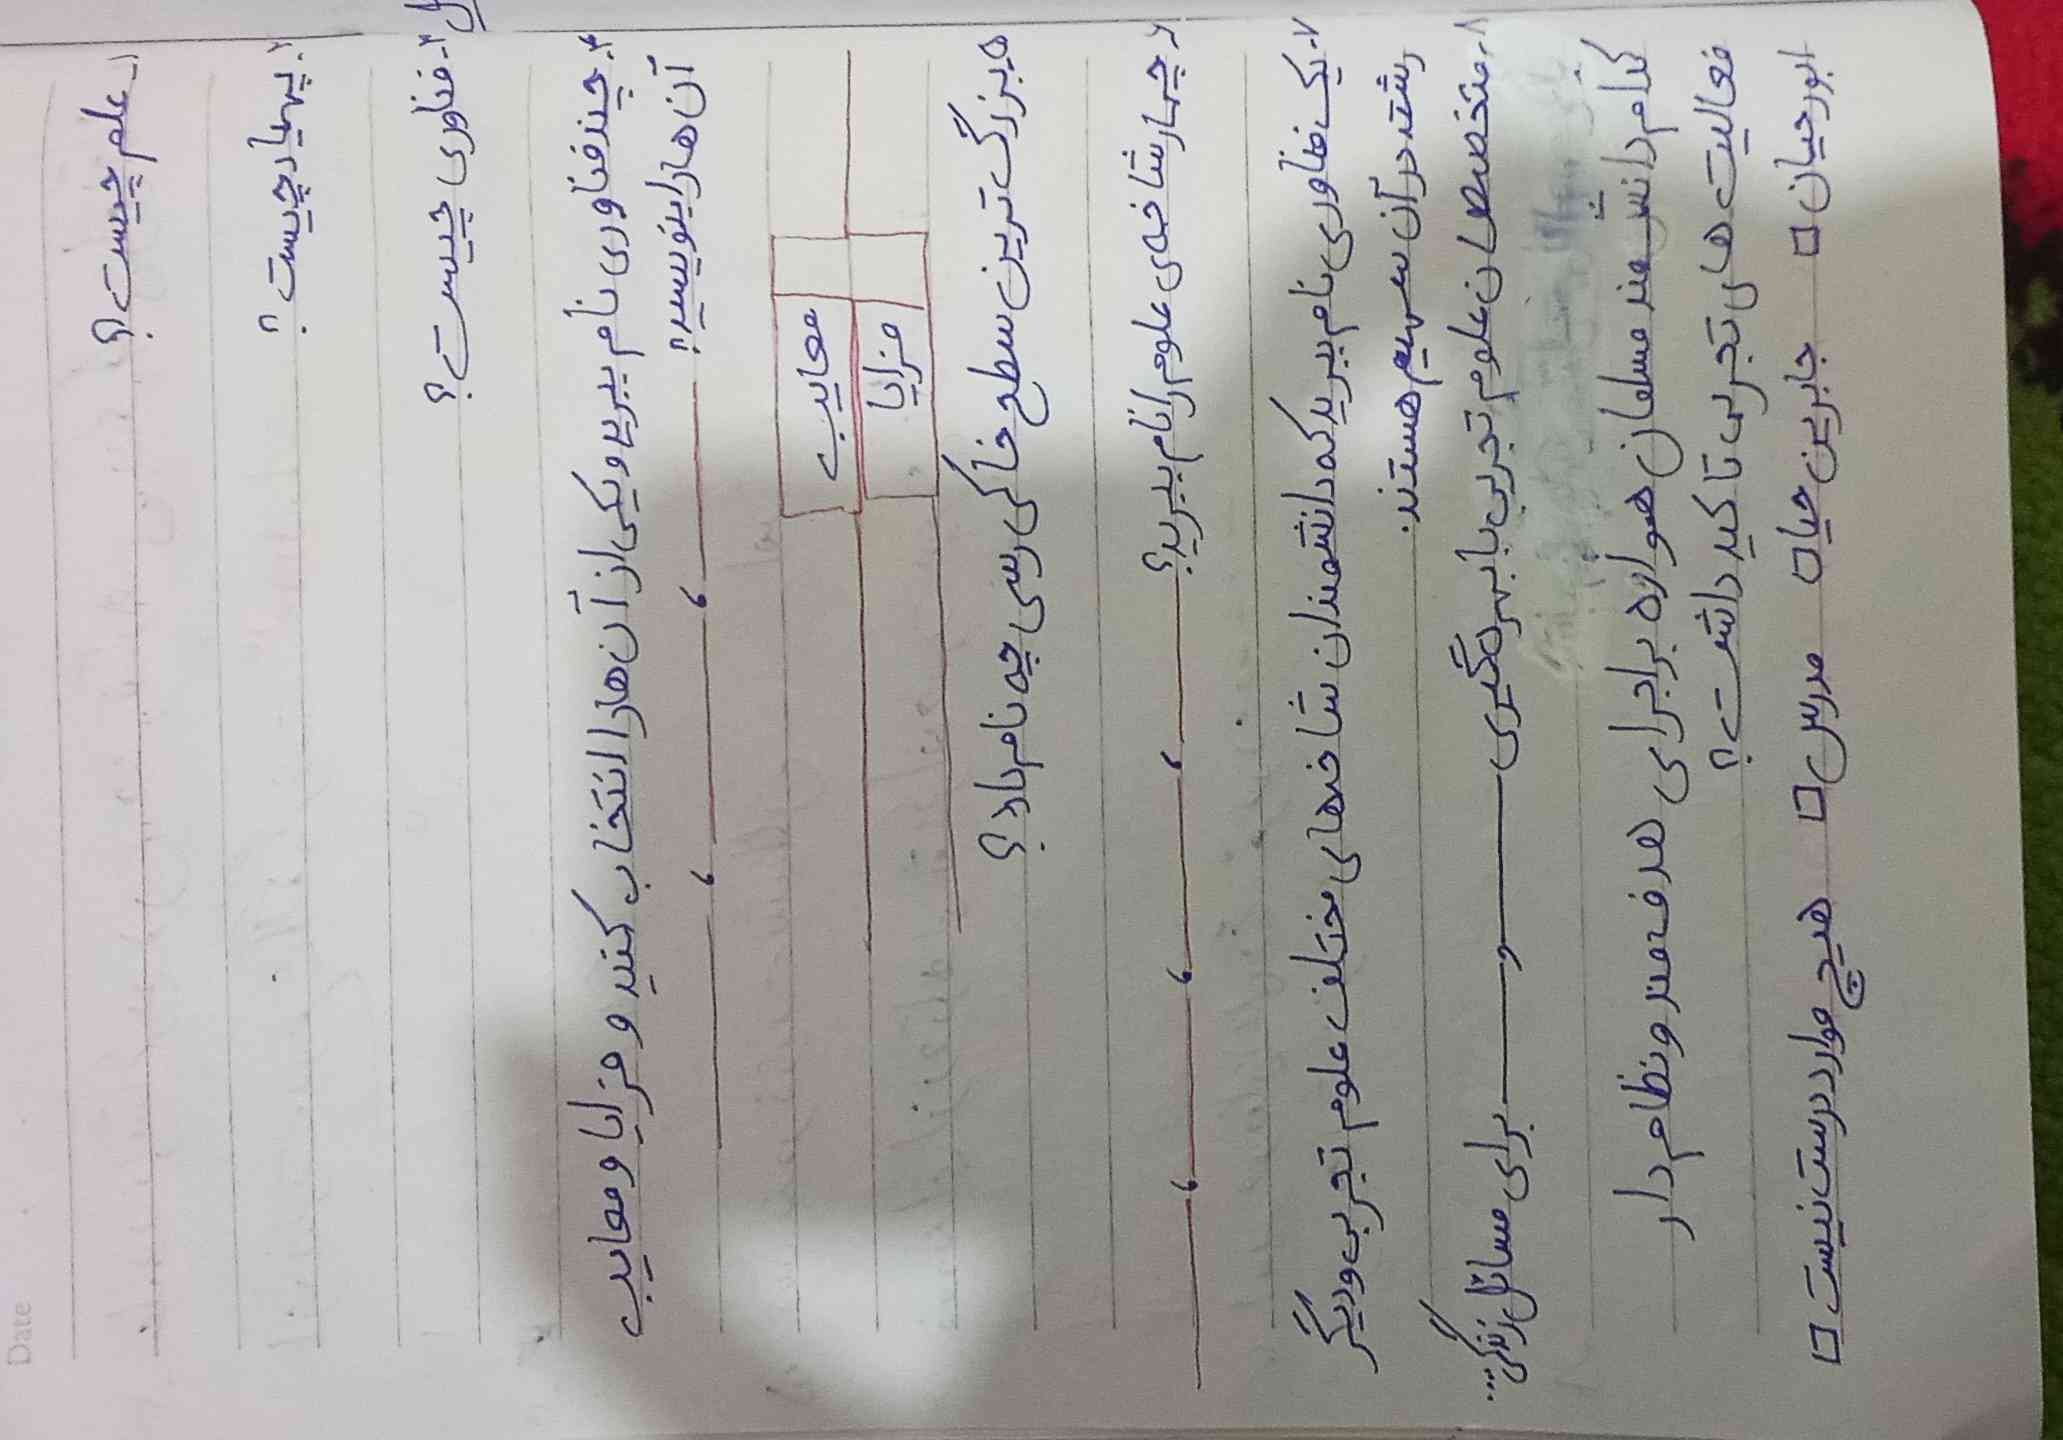 Date
۱- علم چیست؟
۲- پهپاد چیست؟
۳- فناوری چیست؟
۴- چند فناوری نام ببرید و یکی از آن ها را انتخاب کنید و مزایا و معایب
آن ها را بنویسید؟ ، ،
معایب
مزایا
۵- بزرگ ترین سطح خاکی رسی چه نام دارد؟
۶- چهار شاخه ی علوم را نام ببرید؟ ، ، ،
۷- یک فناوری نام ببرید که دانشمندان شاخه های مختلف علوم تجربی و دیگر
رشته در آن سهیم هستند.
۸- متخصصان علوم تجربی با بهره گیری و برای مسائل زندگی...
کدام دانش مند مسلمان همواره بر اجرای هدف مند و نظام دار
فعالیت های تجربی تاکید داشت؟
ابور حیان □ جابربن حیان □ مدرس □ هیچ موارد درست نیست □